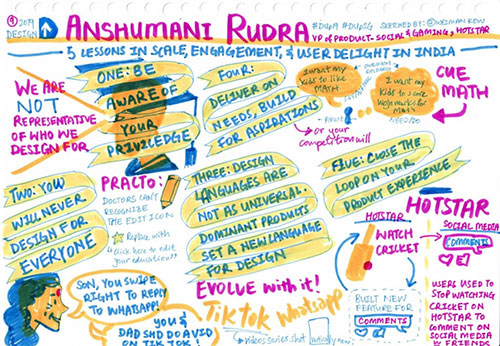 2019
DESIGN UP
ANSHUMANI RUDRA
#DUp19 #DUpSG SKETCHED BY:
VP OF PRODUCT- SOCIAL & GAMING, HOTSTAR
5 LESSONS IN SCALE, ENGAGEMENT, & USER DELIGHT IN INDIA
WE ARE
NOT
REPRESENTATIVE
OF WHO WE
DESIGN FOR
ONE: BE
AWARE OF
YOUR
PRIVILEGE
FOUR:
DELIVER ON
NEEDS, BUILD
FOR ASPIRATIONS
I want my
kids to like
MATH
I want my
kids to score
high marks for
MATH
NEED
→ or your
competition will
CUE
MATH
TWO: YOU
WILL NEVER
DESIGN FOR
EVERYONE
PRACTO:
DOCTORS CAN'T
RECOGNISE
THE EDIT ICON
Replace with
"click here to edit
your education"
THREE: DESIGN
LANGUAGES ARE
NOT AS UNIVERSAL.
DOMINANT PRODUCTS
SET A NEW LANGUAGE
FOR DESIGN
EVOLVE with it!
FIVE: CLOSE THE
LOOP ON YOUR
PRODUCT EXPERIENCE
HOTSTAR
HOTSTAR
WATCH
CRICKET
SOCIAL MEDIA
COMMENTS
BUILT NEW
FEATURE FOR
COMMENT
USERS USED TO
STOP WATCHING
CRICKET ON
HOTSTAR TO
COMMENT ON
SOCIAL MEDIA
W FRIENDS
SON, YOU SWIPE
RIGHT TO REPLY
TO WHATSAPP!
YOU &
DAD SHD DO A VID
ON TIK TOK!
TIK TOK Whatsapp
videos series that